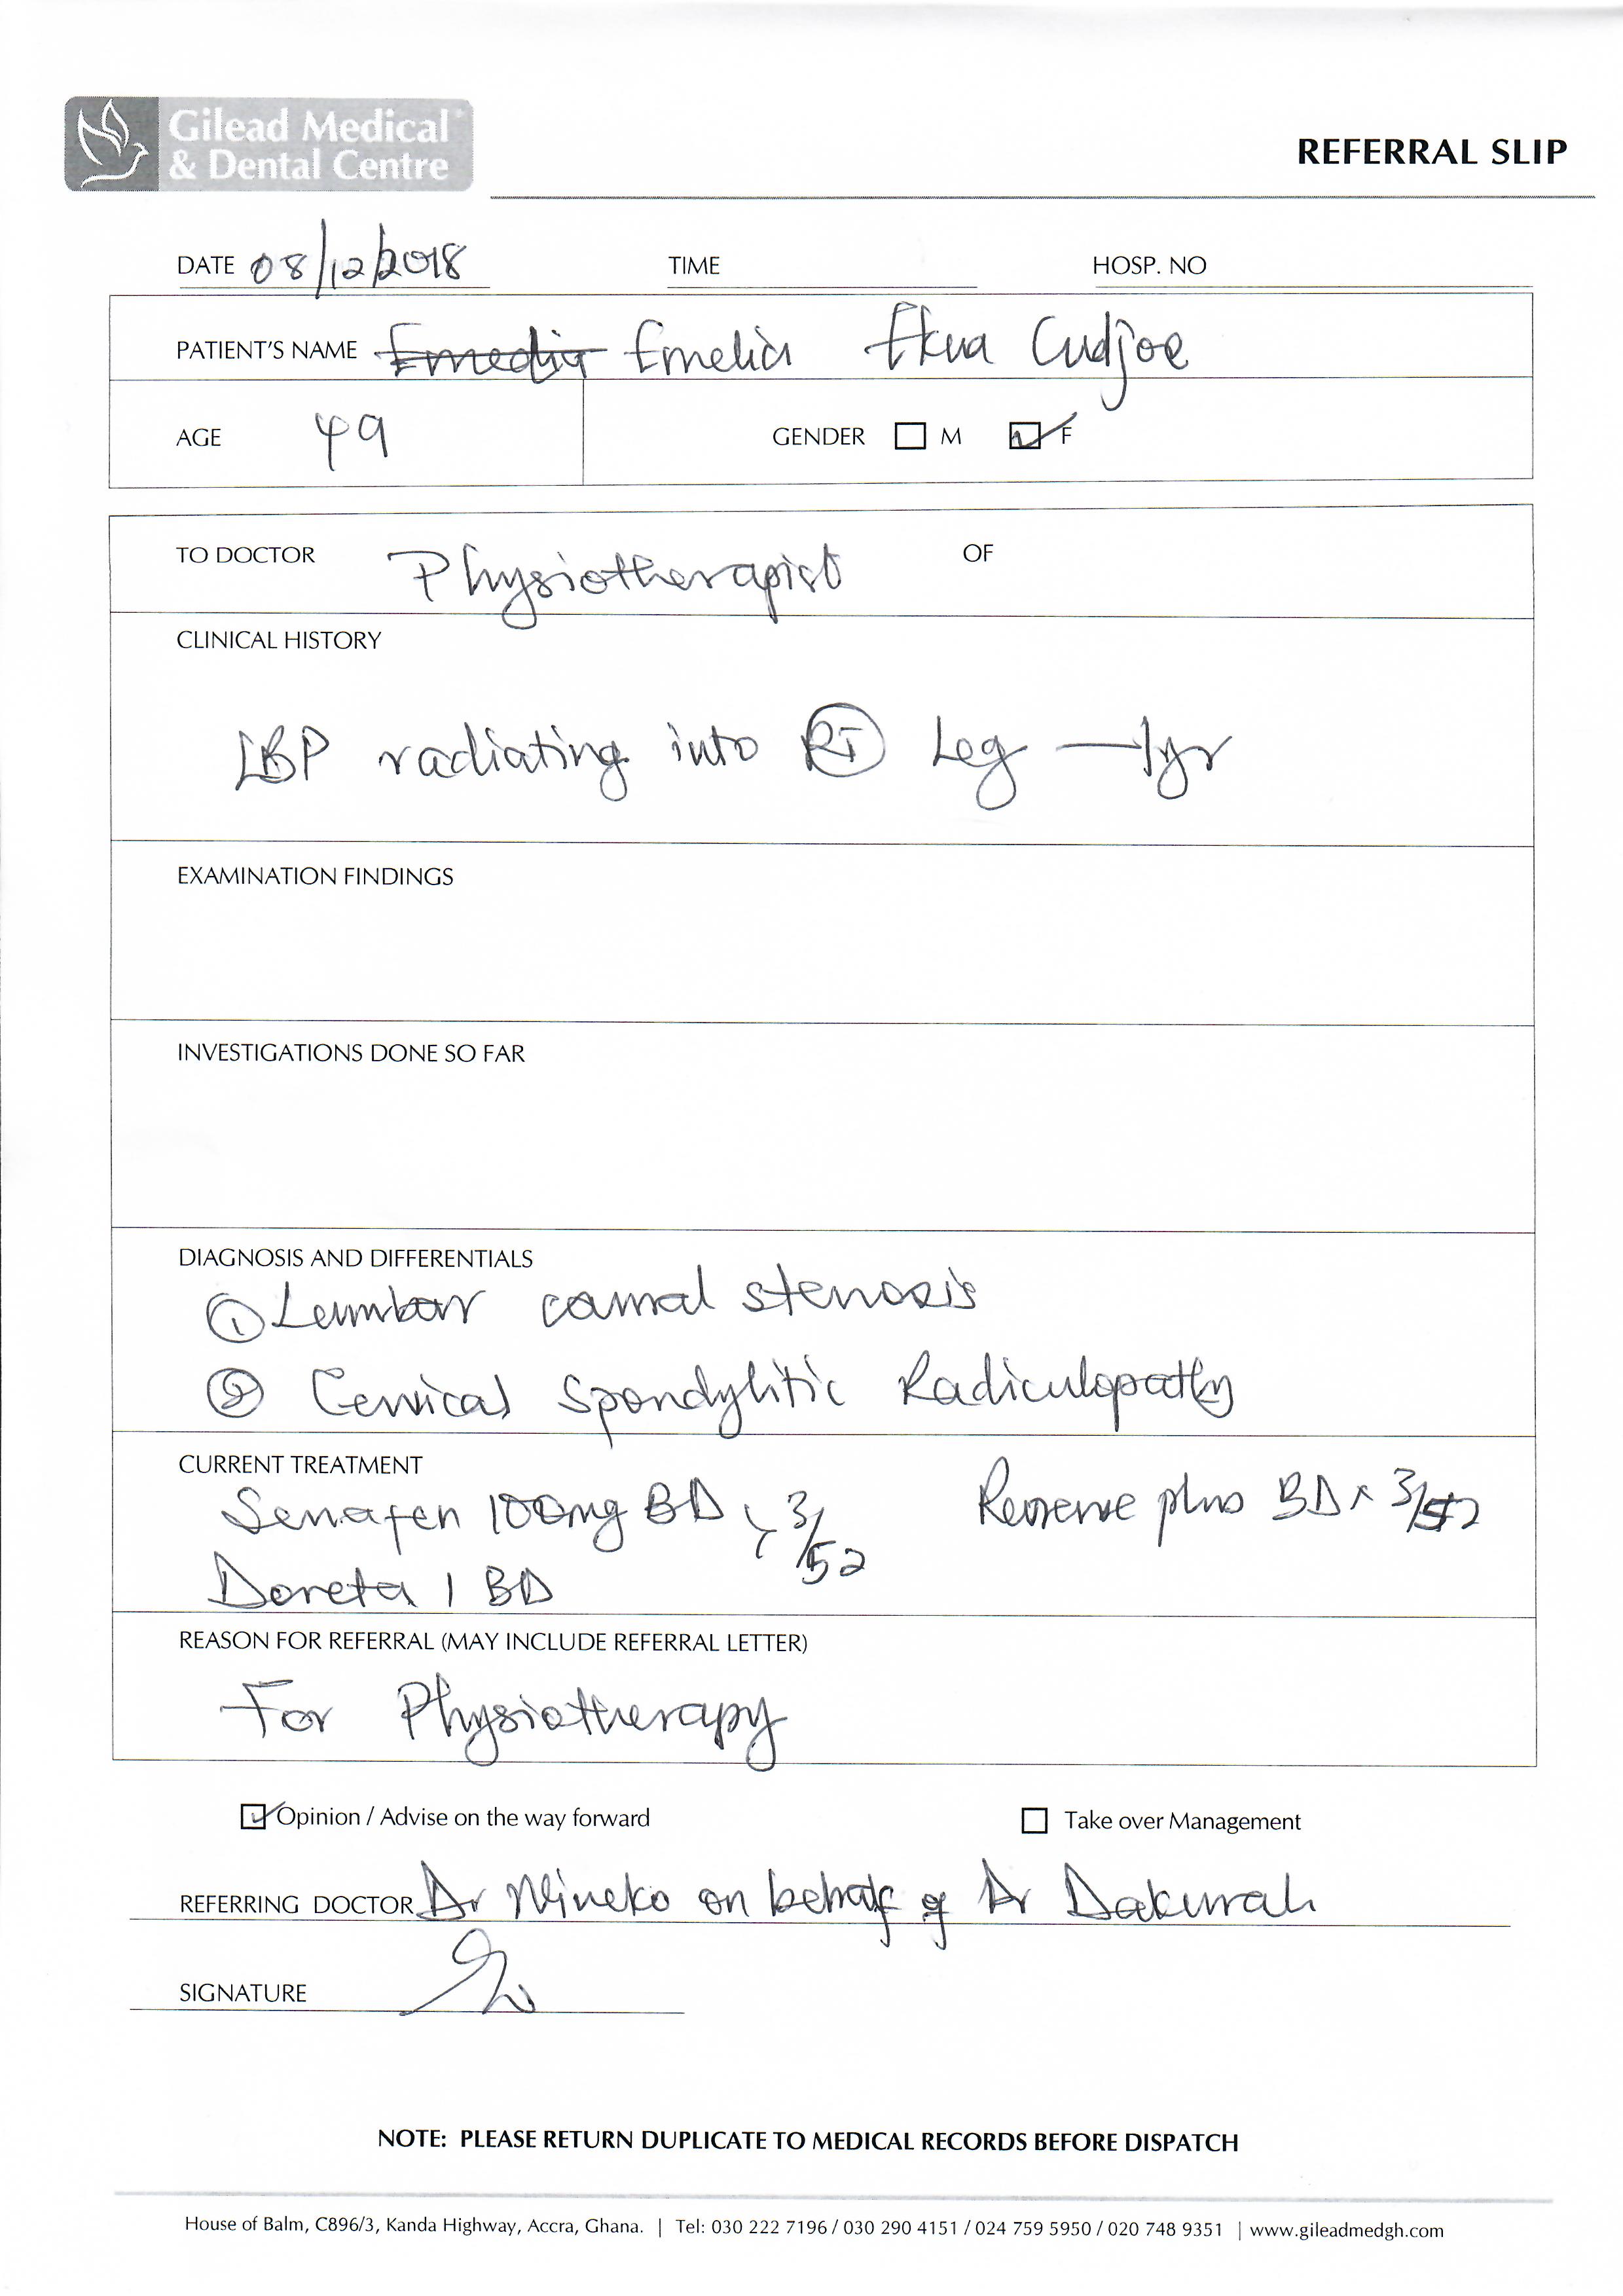 Gilead Medical
& Dental Centre
REFERRAL SLIP
DATE 08/12/2018 TIME HOSP. NO
PATIENT'S NAME Emelia Ekua Cudjoe
AGE 49 GENDER M F
TO DOCTOR Physiotherapist OF
CLINICAL HISTORY
LBP radiating into RT Leg — 1yr
EXAMINATION FINDINGS
INVESTIGATIONS DONE SO FAR
DIAGNOSIS AND DIFFERENTIALS
① Lumbar canal stenosis
② Cervical Spondylitic Radiculopathy
CURRENT TREATMENT
Senafen 100mg BD x 3/52 plus BD x 3/52
Doreta 1 BD
REASON FOR REFERRAL (MAY INCLUDE REFERRAL LETTER)
For Physiotherapy
Opinion / Advise on the way forward Take over Management
REFERRING DOCTOR Dr on behalf of Dr Dakurah
SIGNATURE
NOTE: PLEASE RETURN DUPLICATE TO MEDICAL RECORDS BEFORE DISPATCH
House of Balm, C896/3, Kanda Highway, Accra, Ghana. | Tel: 030 222 7196 / 030 290 4151 / 024 759 5950 / 020 748 9351 | www.gileadmedgh.com